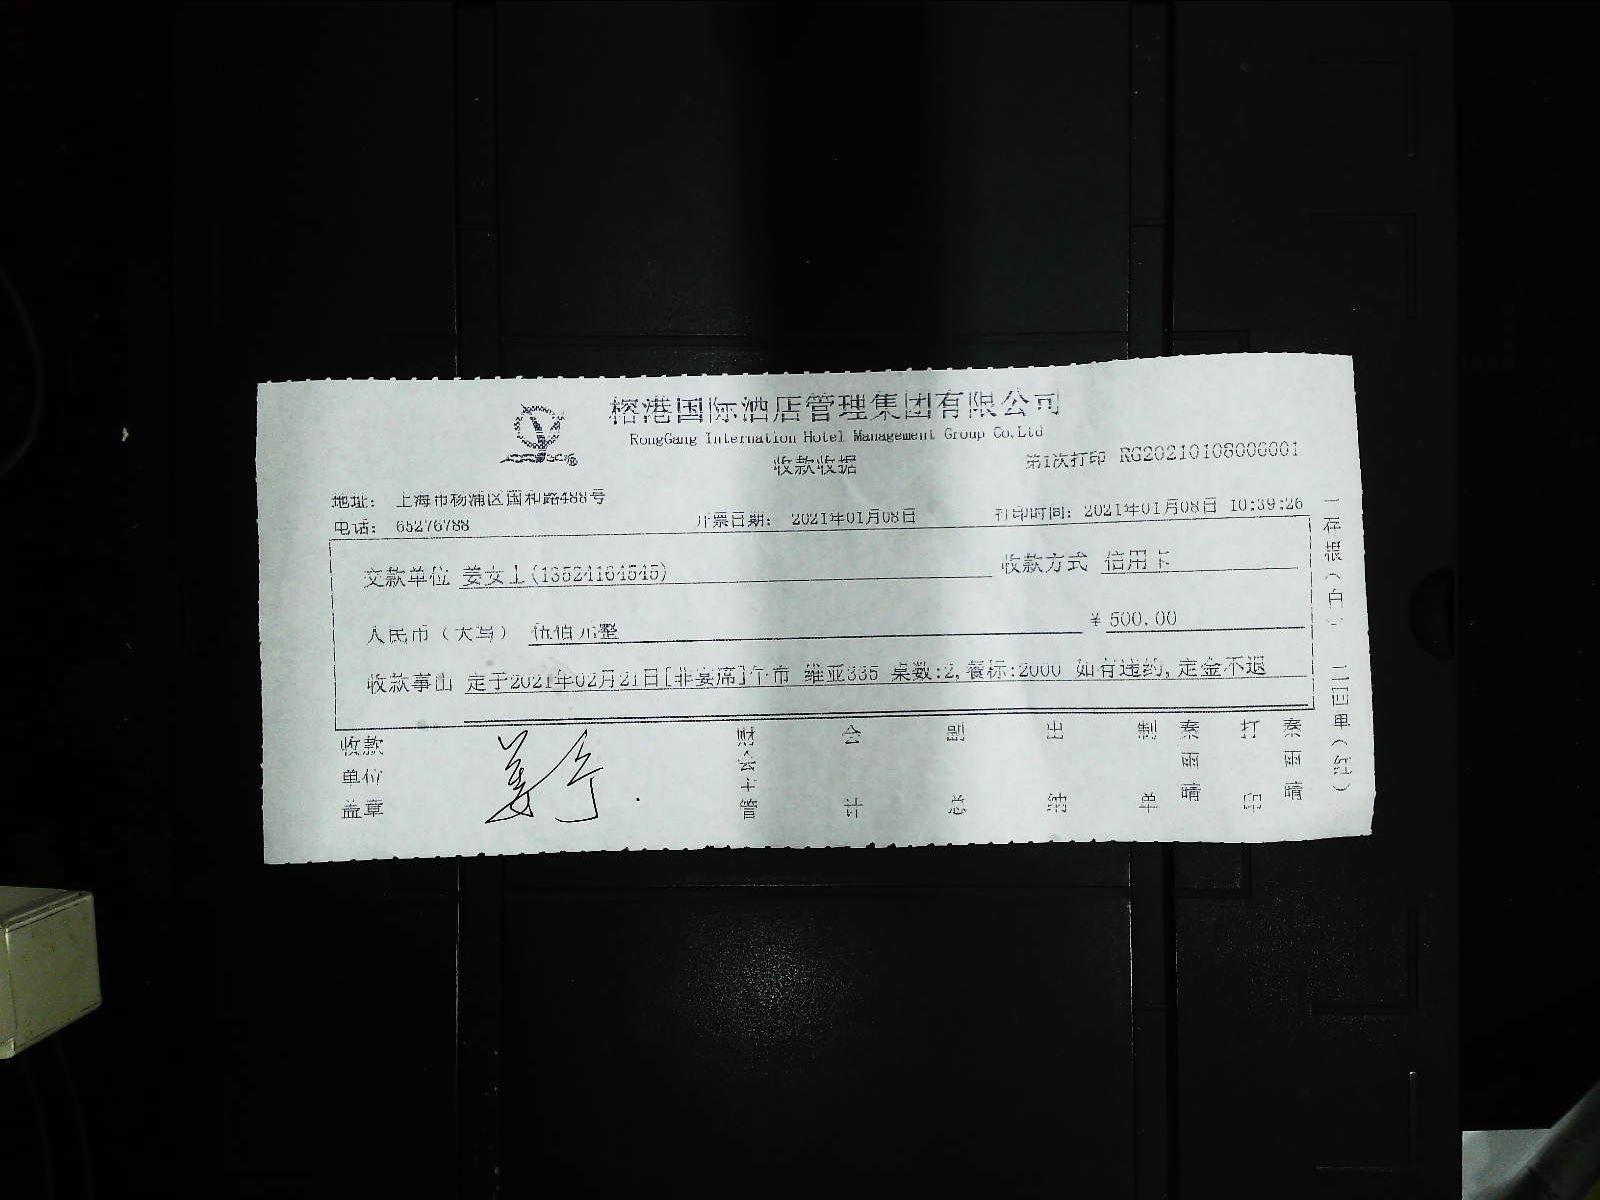 榕港国际酒店管理集团有限公司
RongGang Internation Hotel Management Group Co,Ltd
收款收据
第1次打印 RG20210108006001
地址： 上海市杨浦区国和路488号
电话： 65276788
开票日期： 2021年01月08日
打印时间：2021年01月08日 10:39:26
交款单位 姜女士(13524164545)
收款方式 信用卡
人民币（大写） 伍佰元整
¥ 500.00
收款事由 定于2021年02月21日[非宴席]午市 维亚335 桌数:2,餐标:2000 如有违约,定金不退
收款单位盖章
财会主管
会计
副总
出纳
制单 秦雨晴
打印 秦雨晴
一存根（白） 二回单（红）